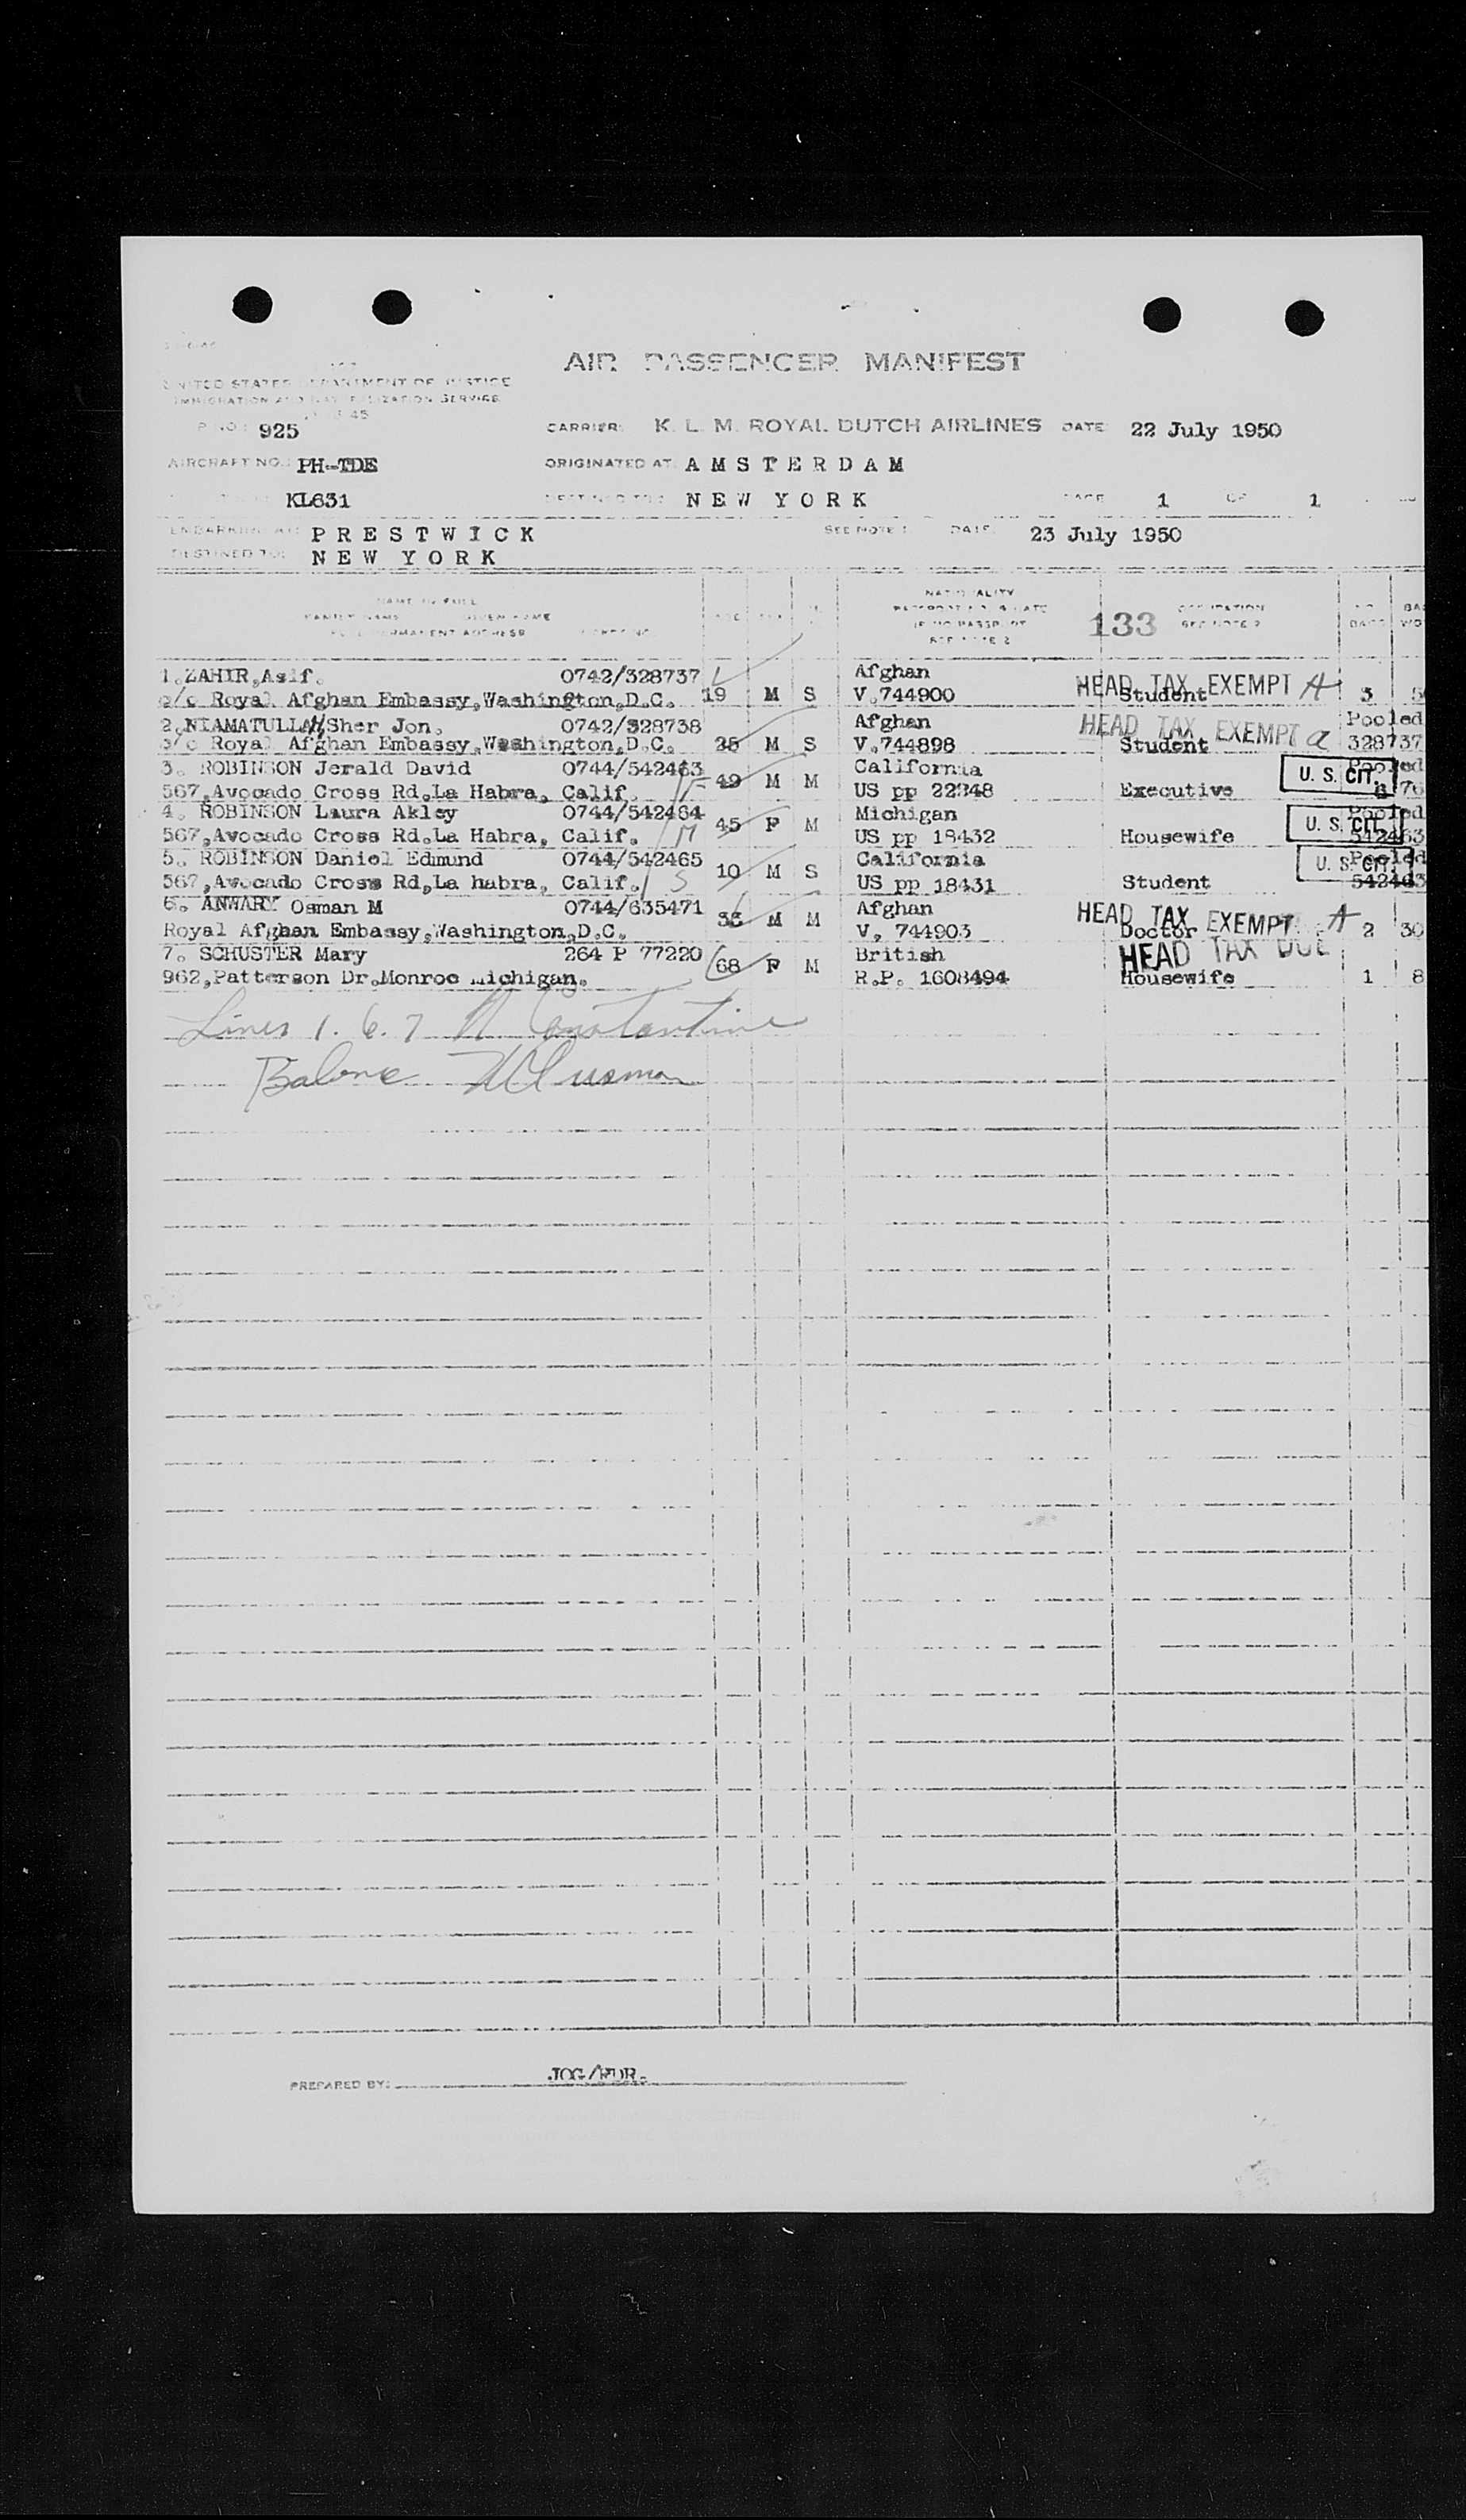 AIR PASSENGER MANIFEST
UNITED STATES DEPARTMENT OF JUSTICE
IMMIGRATION AND NATURALIZATION SERVICE
925 CARRIER: K. L. M. ROYAL DUTCH AIRLINES DATE 22 July 1950
AIRCRAFT NO.: PH-TDE ORIGINATED AT: AMSTERDAM
KL631 DESTINED TO: NEW YORK PAGE 1 OF 1
EMBARKING AT: PRESTWICK SEE NOTE 1 DATE 23 July 1950
DESTINED TO: NEW YORK
NAME IN FULL NATIONALITY
FAMILY NAME GIVEN NAME AGE SEX PASSPORT NO. & DATE OCCUPATION
PERMANENT ADDRESS IF NO PASSPORT 133 SEE NOTE 2
SEE NOTE 2
1.ZAHIR,Asif. 0742/328737 Afghan HEAD TAX EXEMPT A
c/o Royal Afghan Embassy,Washington,D.C. 19 M S V.744900 Student 3
2.NIAMATULLAH,Sher Jon. 0742/328738 Afghan HEAD TAX EXEMPT a Pooled
c/o Royal Afghan Embassy,Washington,D.C. 25 M S V.744898 Student 328737
3. ROBINSON Jerald David 0744/542463 California U. S. CIT. Pooled
567,Avocado Cross Rd.La Habra, Calif. F 49 M M US pp 22348 Executive 76
4. ROBINSON Laura Akley 0744/542464 Michigan U. S. CIT. Pooled
567,Avocado Cross Rd.La Habra, Calif. M 45 F M US pp 18432 Housewife 542463
5. ROBINSON Daniel Edmund 0744/542465 California U. S. CIT. Pooled
567,Avocado Cross Rd,La habra, Calif. S 10 M S US pp 18431 Student 542463
6. ANWARY Osman M 0744/635471 Afghan HEAD TAX EXEMPT A
Royal Afghan Embassy,Washington,D.C. M M V, 744903 Doctor 2 30
7. SCHUSTER Mary 264 P 77220 British HEAD TAX DUE
962,Patterson Dr.Monroe Michigan. 68 F M R.P. 1608494 Housewife 1 8
Lines 1. 6. 7 Constantine
Balance
PREPARED BY: JOG/FDR.